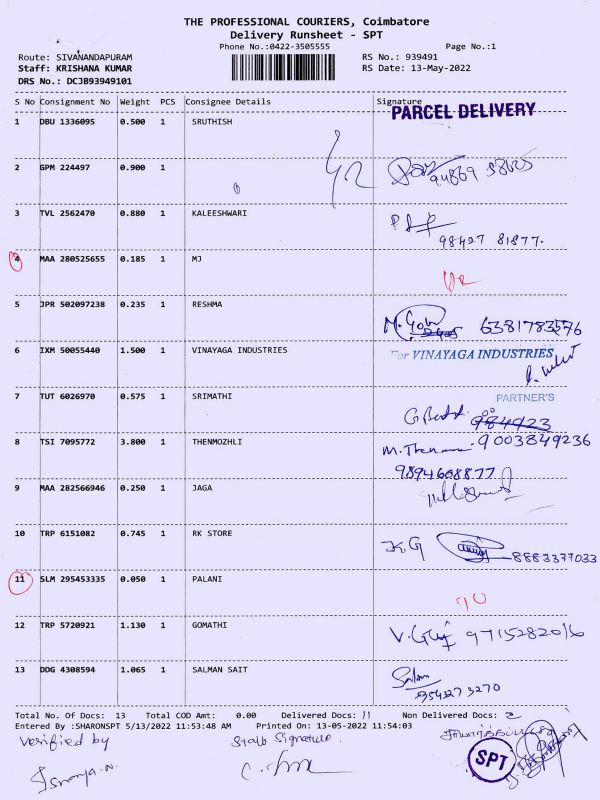 THE PROFESSIONAL COURIERS, Coimbatore
Delivery Runsheet - SPT
Phone No.:0422-3505555 Page No.:1
Route: SIVANANDAPURAM RS No.: 939491
Staff: KRISHANA KUMAR RS Date: 13-May-2022
DRS No.: DCJB93949101
S No Consignment No Weight PCS Consignee Details Signature
PARCEL DELIVERY
1 DBU 1336095 0.500 1 SRUTHISH
2 GPM 224497 0.900 1
3 TVL 2562470 0.880 1 KALEESHWARI
98427 81877.
4 MAA 280525655 0.185 1 MJ
5 JPR 502097238 0.235 1 RESHMA
6381783576
6 IXM 50055440 1.500 1 VINAYAGA INDUSTRIES For VINAYAGA INDUSTRIES
PARTNER'S
7 TUT 6026970 0.575 1 SRIMATHI
984923
9003849236
8 TSI 7095772 3.800 1 THENMOZHLI
9894608877
9 MAA 282566946 0.250 1 JAGA
10 TRP 6151082 0.745 1 RK STORE K G
8883377033
11 SLM 295453335 0.050 1 PALANI
12 TRP 5720921 1.130 1 GOMATHI
9715282016
13 DDG 4308594 1.065 1 SALMAN SAIT Salman
9543273270
Total No. Of Docs: 13 Total COD Amt: 0.00 Delivered Docs: 11 Non Delivered Docs: 2
Entered By :SHARONSPT 5/13/2022 11:53:48 AM Printed On: 13-05-2022 11:54:03
Verified by Staff Signature
SPT